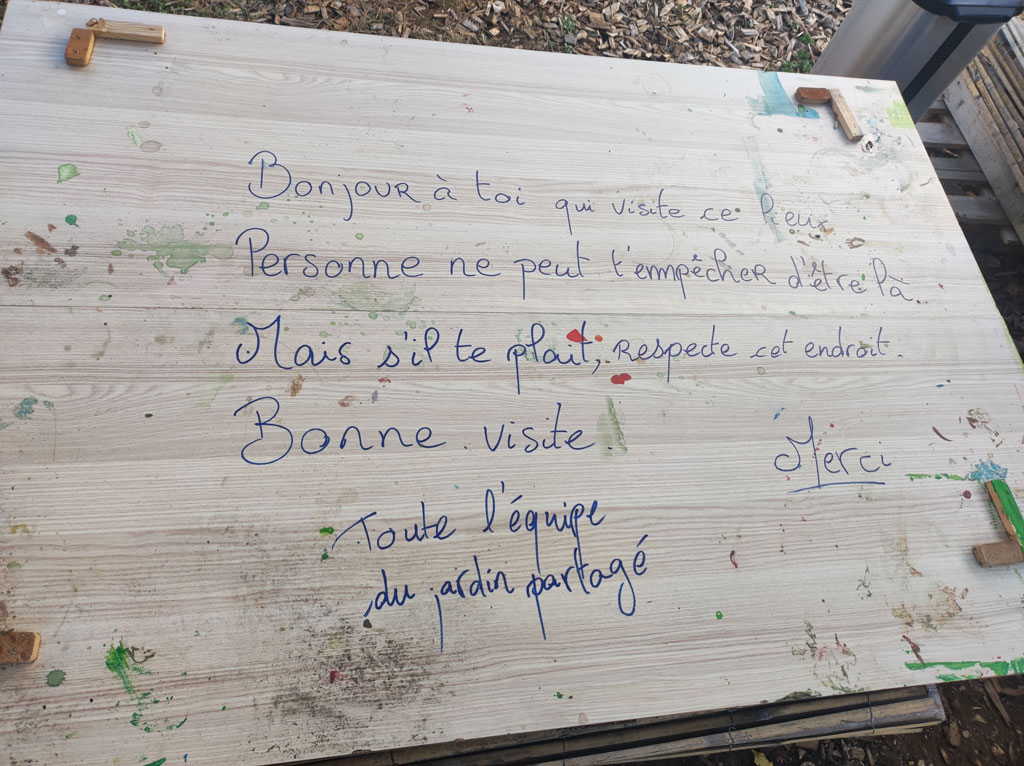 Bonjour à toi qui visite ce lieux
Personne ne peut t'empêcher d'être là.
Mais s'il te plait, respecte cet endroit.
Bonne visite.
Merci
Toute l'équipe
du jardin partagé